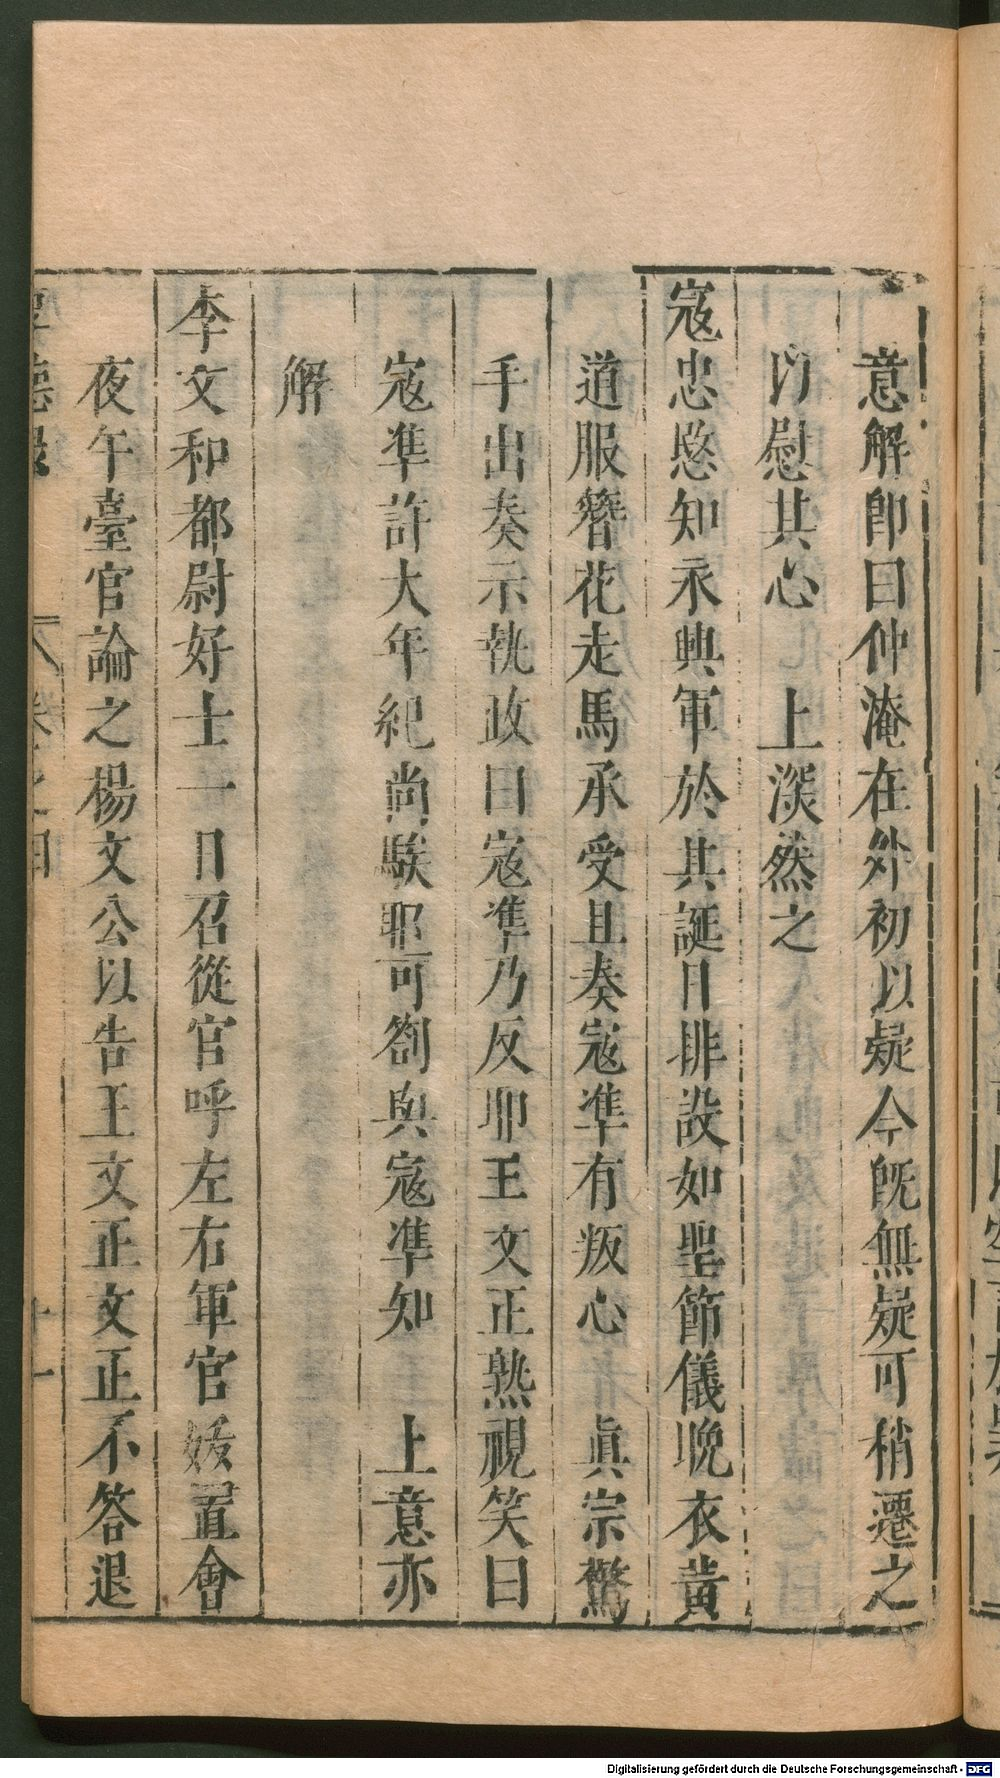 意解卽曰仲淹在外初以疑今旣無疑可稍遷之
以慰其心　上深然之
寇忠愍知永興軍於其誕日排設如聖節儀晚衣黃
道服簪花走馬承受且奏寇準有叛心　眞宗驚
手出奏示執政曰寇準乃反耶王文正熟視笑曰
寇準許大年紀尚騃耶可劄與寇準知　上意亦
解
李文和都尉好士一日召從官呼左右軍官妓置會
夜午臺官論之楊文公以告王文正文正不答退
德錄　卷之四　十一
Digitalisierung gefördert durch die Deutsche Forschungsgemeinschaft - DFG